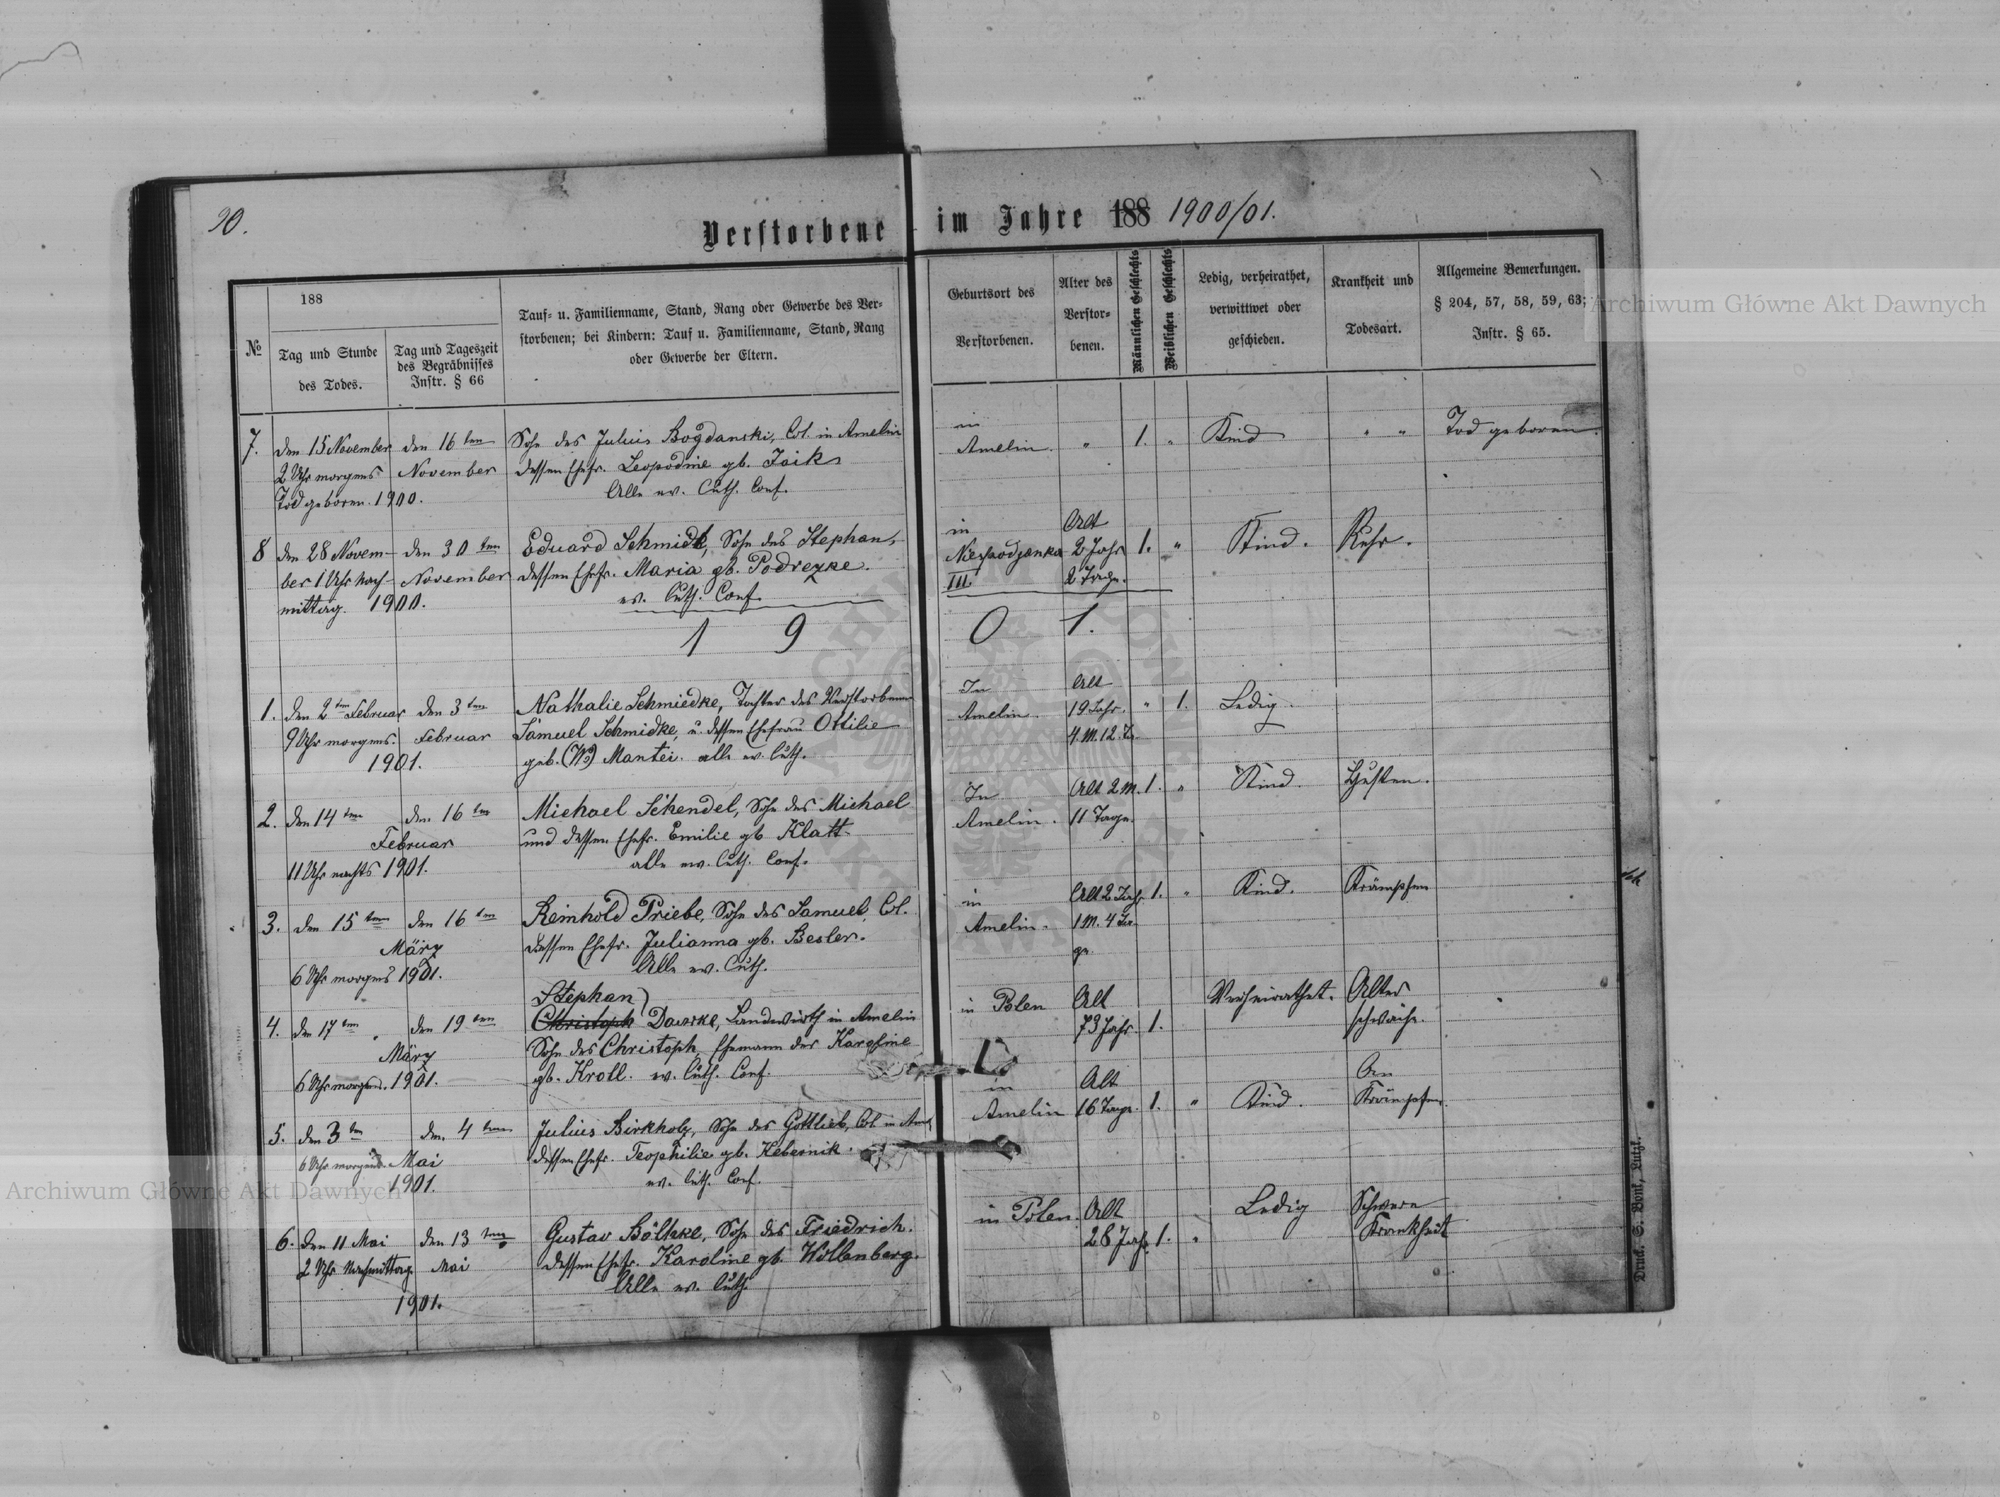 90.
Verstorbene im Jahre 188 1900/01.
№
188
Tag und Stunde
des Todes.
Tag und Tageszeit
des Begräbnisses
Instr. § 66
Tauf- u. Familienname, Stand, Rang oder Gewerbe des Ver-
storbenen; bei Kindern: Tauf u. Familienname, Stand, Rang
oder Gewerbe der Eltern.
Geburtsort des
Verstorbenen.
Alter des
Verstor-
benen.
Männlichen Geschlechts
Weiblichen Geschlechts
Ledig, verheirathet,
verwittwet oder
geschieden.
Krankheit und
Todesart.
Allgemeine Bemerkungen.
§ 204, 57, 58, 59, 63;
Instr. § 65.
7.
den 15 November
2 Uhr morgens
Tod geboren. 1900.
den 16 ten
November
Sohn des Julius Bogdanski, Col. in Amelin
dessen Ehefr. Leopodine gb. Jaiks
Alle ev. Luth. Conf.
in
Amelin.
"
1.
"
Kind
" "
Tod geboren.
8
den 28 Novem-
ber 1 Uhr nach-
mittag. 1900.
den 30 ten
November
Eduard Schmidt, Sohn des Stephan,
dessen Ehefr. Maria gb. Podrezke.
ev. Luth. Conf.
in
Niespodzanka
III
Alt
2 Jahr
2 Tage.
1.
"
Kind.
Ruhr.
1 9 0 1.
1.
den 2 ten Februar
9 Uhr morgens.
1901.
den 3 ten
Februar
Nathalie Schmiedke, Tochter des Verstorbenen
Samuel Schmidke, u. dessen Ehefrau Ottilie
geb. (W.) Mantei. alle ev. Luth.
In
Amelin.
Alt
19 Jahr.
4. M. 12. Ta.
"
1.
Ledig.
2.
den 14 ten
Februar
11 Uhr nachts 1901.
den 16 ten
Michael Schendel, Sohn des Michael
und dessen Ehefr. Emilie gb. Klatt.
alle ev. Luth. Conf.
In
Amelin.
Alt 2 M.
11 Tage.
1.
"
Kind.
Husten.
3.
den 15 ten
März
6 Uhr morgens 1901.
den 16 ten
Reinhold Priebe, Sohn des Samuel, Col.
dessen Ehefr. Julianna gb. Besler.
Alle ev. Luth.
in
Amelin.
Alt 2 Jahr
1 M. 4 Ta-
ge.
1.
"
Kind.
Krämpfen
4.
den 17 ten
März
6 Uhr morgens. 1901.
den 19 ten
Stephan
Christoph Daurke, Landwirth in Amelin
Sohn des Christoph, Ehemann der Karoline
gb. Kroll. ev. Luth. Conf.
in Polen
Alt
73 Jahr.
1.
Verheirathet.
Alters
schwäche.
5.
den 3 ten
6 Uhr morgens. Mai
1901.
den 4 ten
Julius Birkholz, Sohn des Gottlieb, Col. in Am.
dessen Ehefr. Teophilie gb. Hebernik.
ev. Luth. Conf.
in
Amelin
Alt
16 Tage.
1.
"
Kind.
An
Krämpfen.
6.
den 11 Mai
2 Uhr Nachmittag
1901.
den 13 ten
Mai
Gustav Böltzke, Sohn des Friedrich.
dessen Ehefr. Karoline gb. Wollenberg.
Alle ev. Luth.
in Polen.
Alt
28 Jahr
1.
"
Ledig
Schwere
Krankheit
Druck. S. Bonk, Lutzk.
Archiwum Główne Akt Dawnych
Archiwum Główne Akt Dawnych